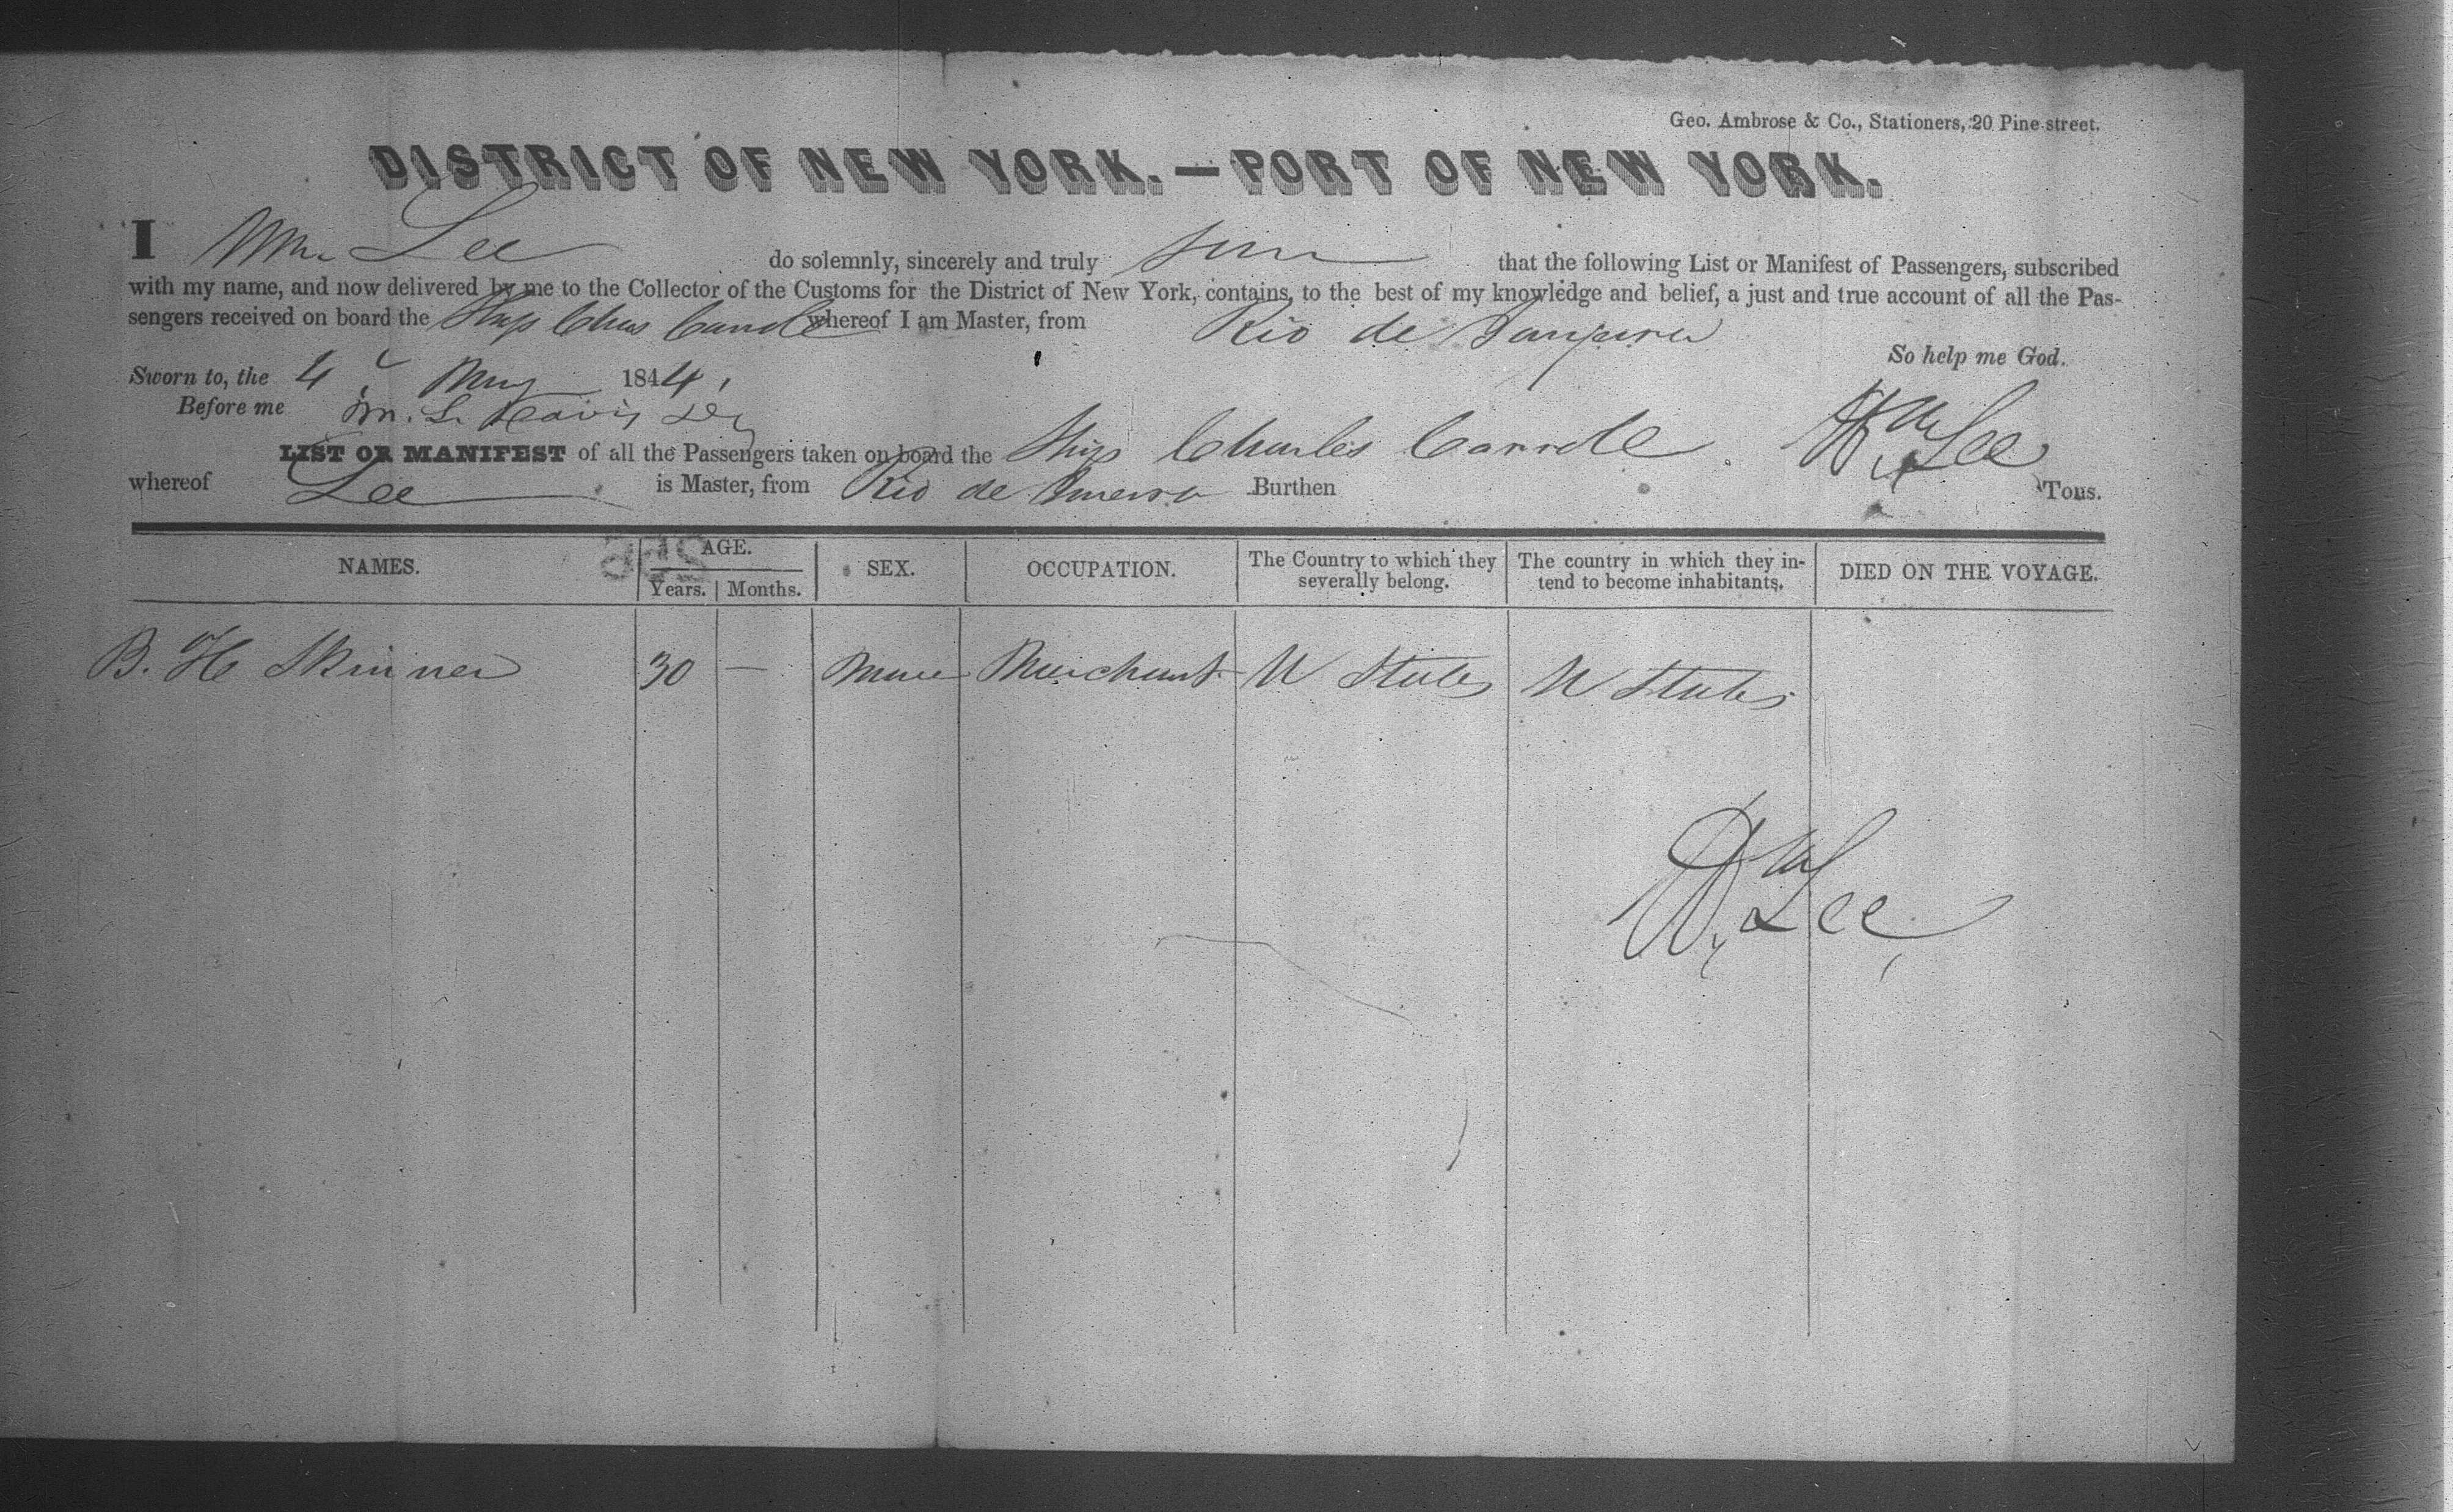 Geo. Ambrose & Co., Stationers, 20 Pine street.
DISTRICT OF NEW YORK.—PORT OF NEW YORK.
I Wm. Lee do solemnly, sincerely and truly that the following List or Manifest of Passengers, subscribed
with my name, and now delivered by me to the Collector of the Customs for the District of New York, contains, to the best of my knowledge and belief, a just and true account of all the Pas-
sengers received on board the Ship Chas Carroll whereof I am Master, from Rio de Janeiro
So help me God.
Sworn to, the 4 May 1844.
Before me M. L. Davis
Wm Lee
LIST OR MANIFEST of all the Passengers taken on board the Ship Charles Carroll
whereof Lee is Master, from Rio de Burthen Tons.
NAMES. AGE. SEX. OCCUPATION. The Country to which they severally belong. The country in which they in-tend to become inhabitants. DIED ON THE VOYAGE.
Years. Months.
B. H Skinner 30 — Male Merchant U States U States
Wm Lee